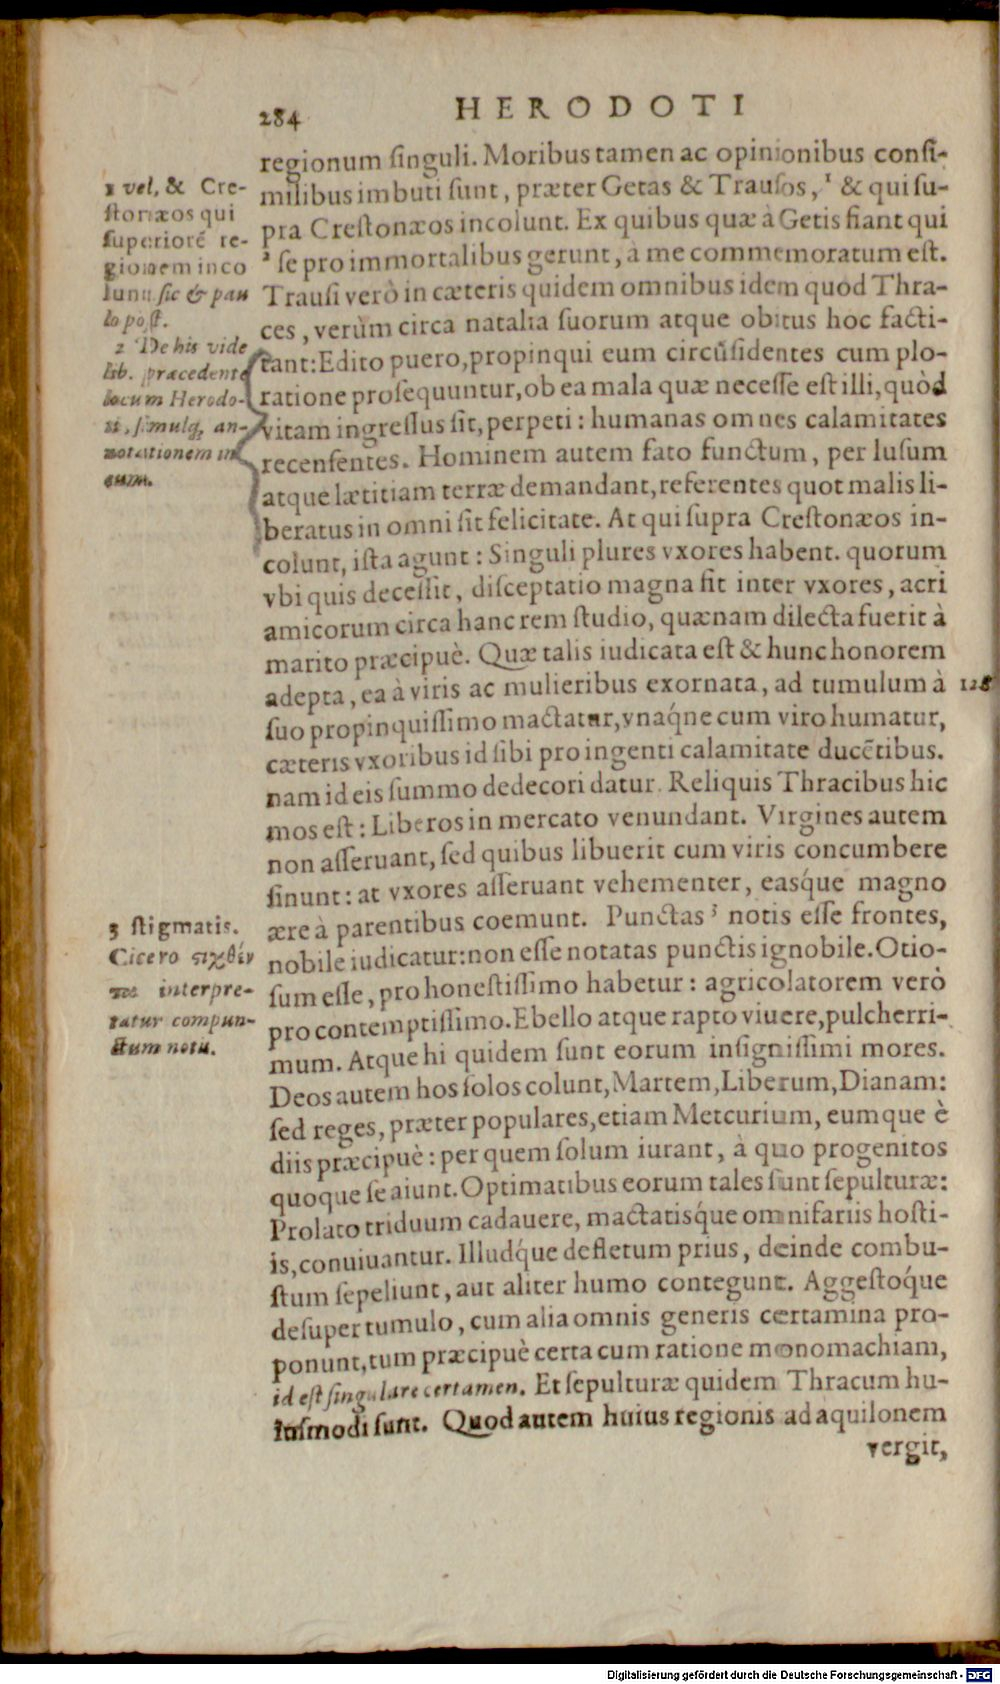 284 HERODOTI
regionum ſinguli. Moribus tamen ac opinionibus conſi-
milibus imbuti ſunt, præter Getas & Trauſos, ¹ & qui ſu-
pra Creſtonæos incolunt. Ex quibus quæ à Getis fiant qui
² ſe pro immortalibus gerunt, à me commemoratum eſt.
Trauſi verò in cæteris quidem omnibus idem quod Thra-
ces, verùm circa natalia ſuorum atque obitus hoc facti-
tant: Edito puero, propinqui eum circũſidentes cum plo-
ratione proſequuntur, ob ea mala quæ neceſſe eſt illi, quòd
vitam ingreſſus ſit, perpeti: humanas omnes calamitates
recenſentes. Hominem autem fato functum, per luſum
atque lætitiam terræ demandant, referentes quot malis li-
beratus in omni ſit felicitate. At qui ſupra Creſtonæos in-
colunt, iſta agunt: Singuli plures vxores habent. quorum
vbi quis deceſſit, diſceptatio magna fit inter vxores, acri
amicorum circa hanc rem ſtudio, quænam dilecta fuerit à
marito præcipuè. Quæ talis iudicata eſt & hunc honorem
adepta, ea à viris ac mulieribus exornata, ad tumulum à
ſuo propinquiſſimo mactatur, vnaq́ne cum viro humatur,
cæteris vxoribus id ſibi pro ingenti calamitate ducẽtibus.
nam id eis ſummo dedecori datur. Reliquis Thracibus hic
mos eſt: Liberos in mercato venundant. Virgines autem
non aſſeruant, ſed quibus libuerit cum viris concumbere
ſinunt: at vxores aſſeruant vehementer, easq́ue magno
ære à parentibus coemunt. Punctas ³ notis eſſe frontes,
nobile iudicatur: non eſſe notatas punctis ignobile. Otio-
ſum eſſe, pro honeſtiſſimo habetur: agricolatorem verò
pro contemptiſſimo. E bello atque rapto viuere, pulcherri-
mum. Atque hi quidem ſunt eorum inſigniſſimi mores.
Deos autem hos ſolos colunt, Martem, Liberum, Dianam:
ſed reges, præter populares, etiam Mercurium, eumque è
diis præcipuè: per quem ſolum iurant, à quo progenitos
quoque ſe aiunt. Optimatibus eorum tales ſunt ſepulturæ:
Prolato triduum cadauere, mactatisq́ue omnifariis hoſti-
is, conuiuantur. Illudq́ue defletum prius, deinde combu-
ſtum ſepeliunt, aut aliter humo contegunt. Aggeſtoq́ue
deſuper tumulo, cum alia omnis generis certamina pro-
ponunt, tum præcipuè certa cum ratione monomachiam,
id eſt ſingulare certamen. Et ſepulturæ quidem Thracum hu-
iuſmodi ſunt. Quod autem huius regionis ad aquilonem
vergit,
1 vel, & Cre-
ſtonæos qui
ſuperiorẽ re-
gionem inco
lunt. ſic & pau
lo poſt.
2 De his vide
lib. præcedente
locum Herodo-
ti, ſimulq; an-
notationem in
eum.
128
3 ſtigmatis.
Cicero ςιχθέν
τας interpre-
tatur compun-
ctum notis.
Digitalisierung gefördert durch die Deutsche Forschungsgemeinschaft - DFG